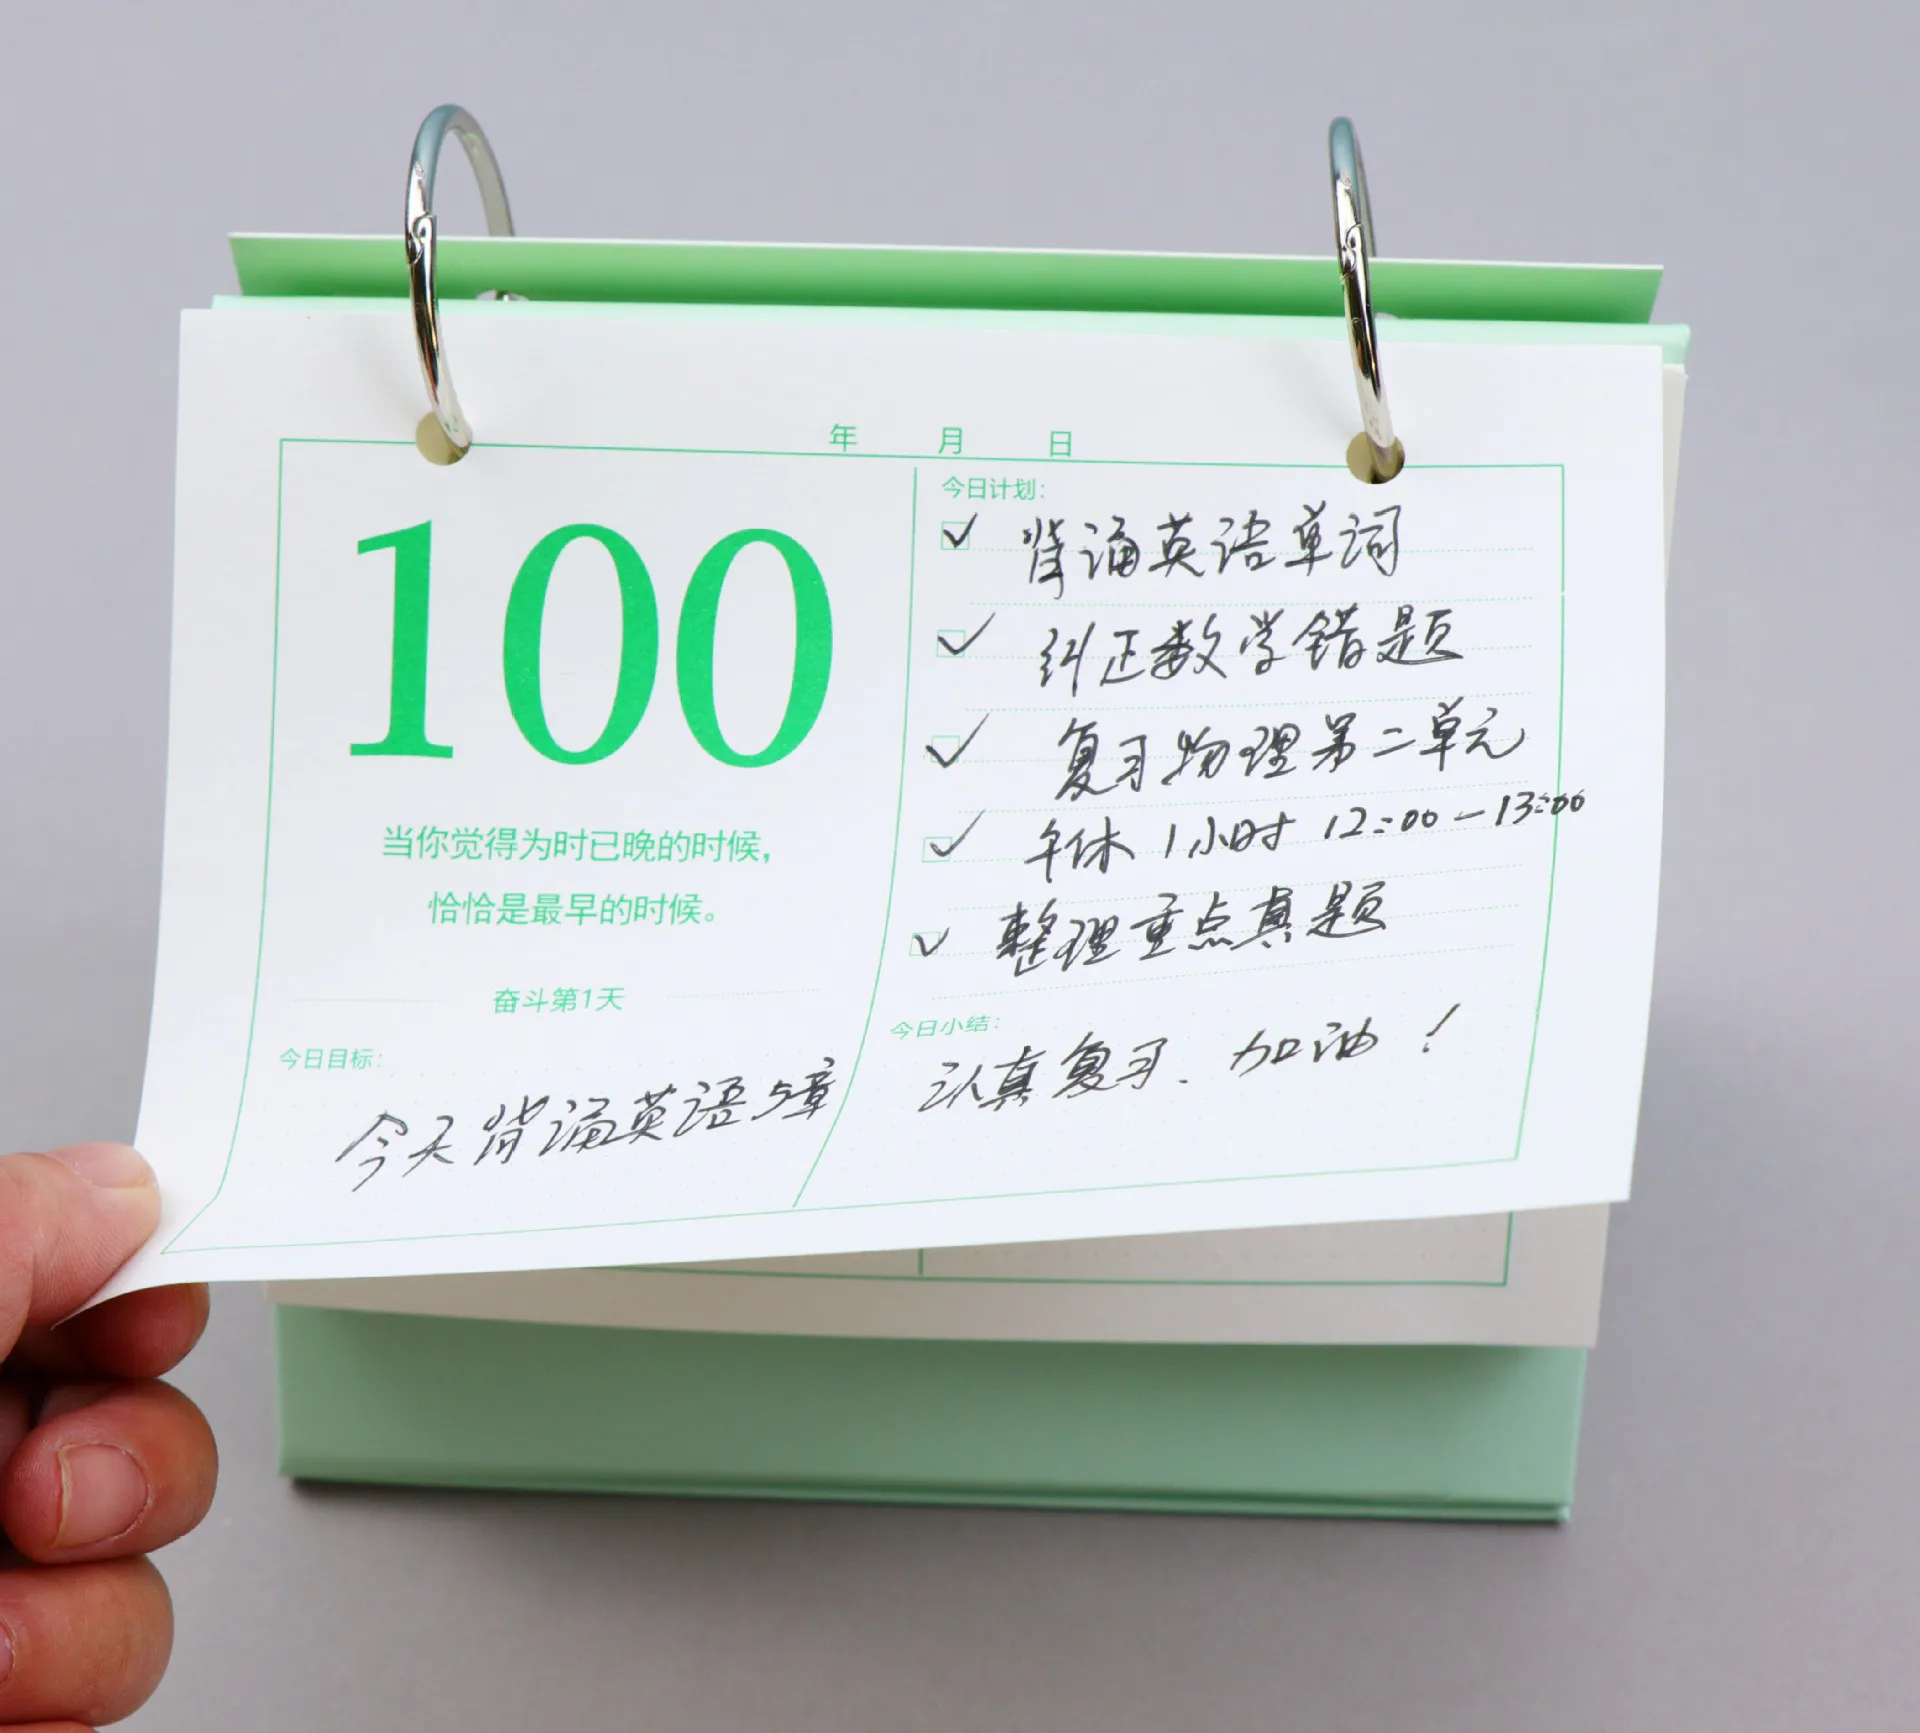 年 月 日
100
当你觉得为时已晚的时候，
恰恰是最早的时候。
奋斗第1天
今日目标：
今天背诵英语5章
今日计划：
背诵英语单词
纠正数学错题
复习物理第二单元
午休1小时 12:00-13:00
整理重点真题
今日小结：
认真复习、加油！